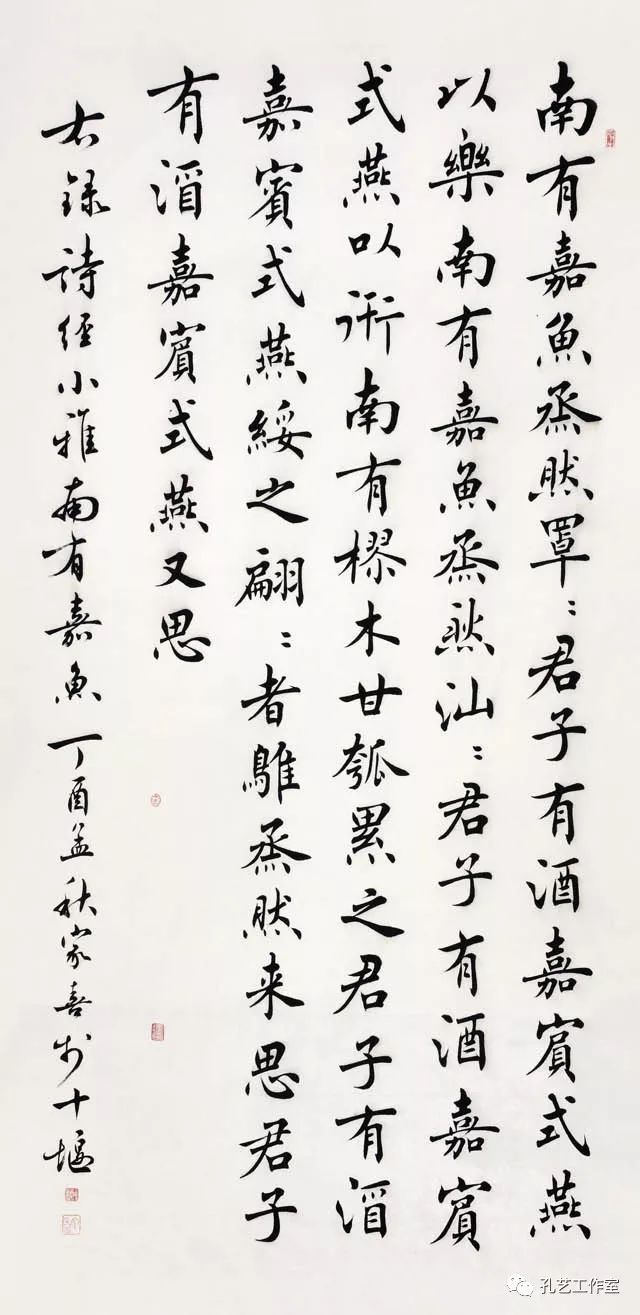 南有嘉魚烝然罩:君子有酒嘉賓式燕
以樂南有嘉魚烝然汕:君子有酒嘉賓
式燕以衎南有樛木甘瓠累之君子有酒
嘉賓式燕綏之翩:者鵻烝然来思君子
有酒嘉賓式燕又思
右録詩經小雅南有嘉魚丁酉孟秋家喜於十堰
孔艺工作室